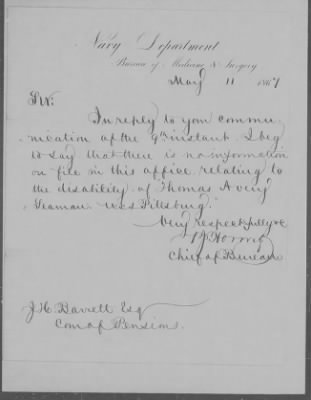 Navy Department
Bureau of Medicine & Surgery
May 11 1867
Sir:
In reply to your commu-
nication of the 9th instant I beg
to say that there is no information
on file in this office relating to
the disability of Thomas Avery
Seaman U.S.S. Pittsburg.
Very respectfully &c
Chief of Bureau
J. H. Barrett Esq
Com of Pensions.